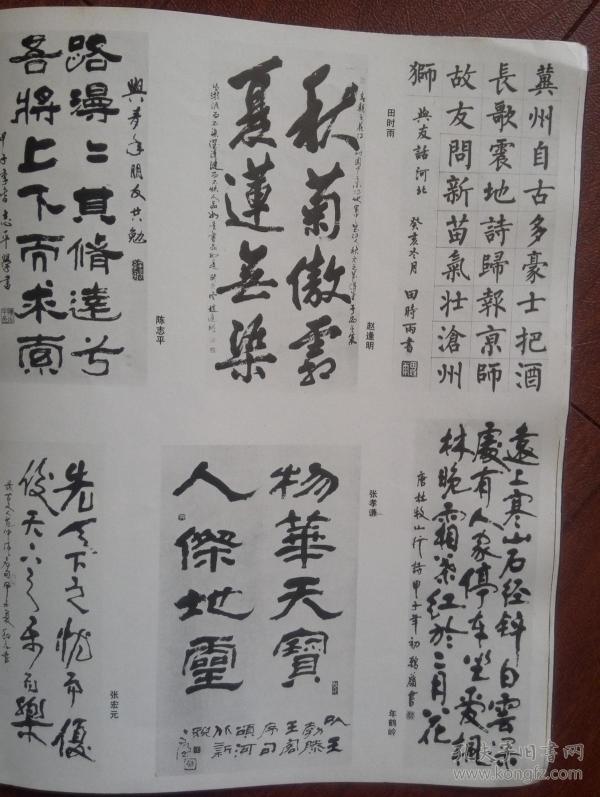 冀州自古多豪士把酒
長歌震地詩歸報京師
故友問新苗氣壯滄州
獅 與友話河北 癸亥冬月 田時雨書
田时雨
秋菊傲霜
夏蓮無染
赵逢明
與夢年朋友共勉
路漫二其脩遠兮
吾將上下而求索
甲子季
志平學書
陈志平
遠上寒山石径斜白雲深
處有人家停车坐爱楓
林晚霜葉红於二月花
唐杜牧山行诗甲子年初鶴岺書
年鹤岭
物華天寶
人傑地靈
以王
勃滕
王閣
序句
頌河
北新
貌
张孝谦
先天下之忧而憂
後天下之乐而樂
张宏元
孔夫子旧书网
www.kongfz.com